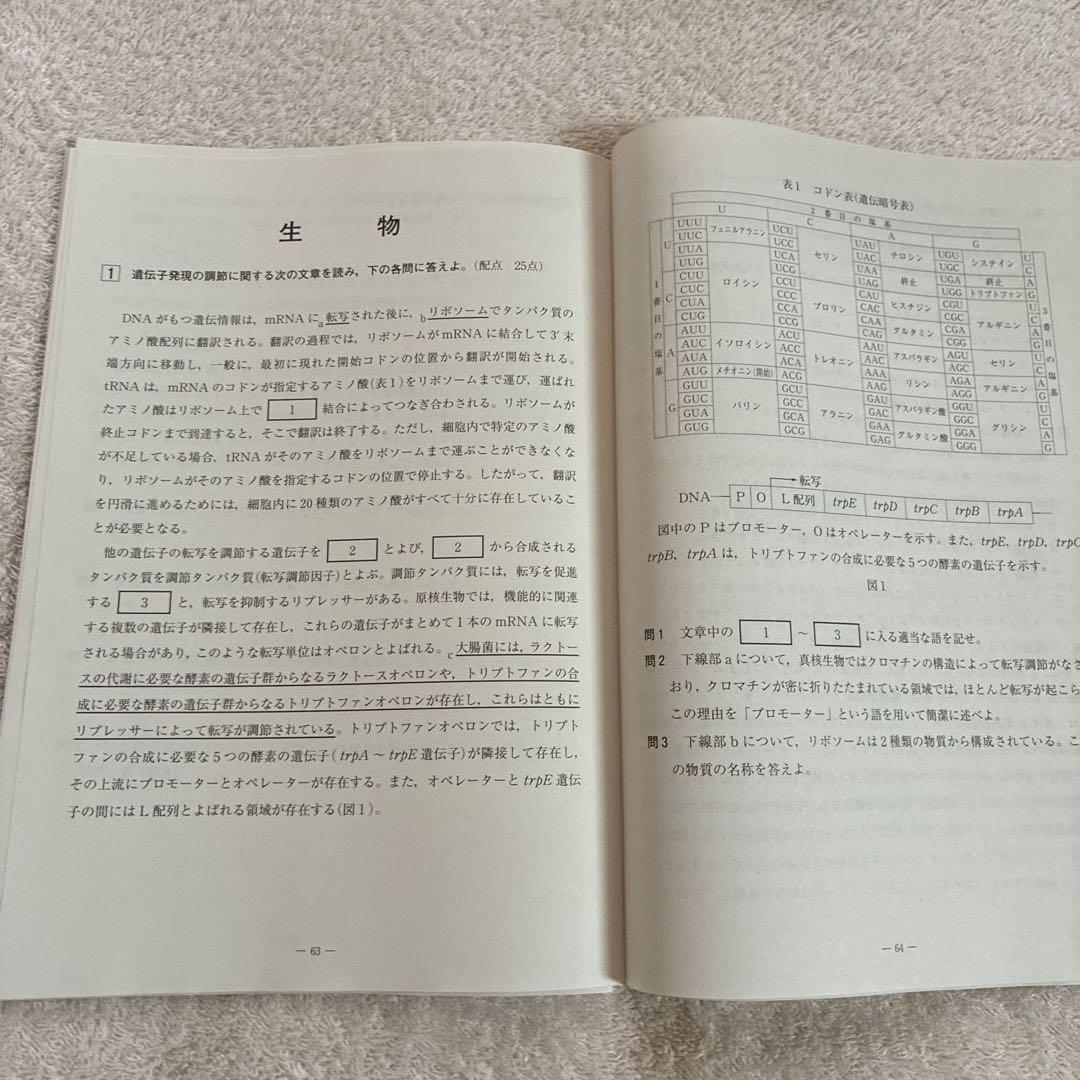 生物
1 遺伝子発現の調節に関する次の文章を読み，下の各問に答えよ。(配点 25点)
DNAがもつ遺伝情報は，mRNAにa転写された後に，bリボソームでタンパク質の
アミノ酸配列に翻訳される。翻訳の過程では，リボソームがmRNAに結合して3′末
端方向に移動し，一般に，最初に現れた開始コドンの位置から翻訳が開始される。
tRNAは，mRNAのコドンが指定するアミノ酸(表1)をリボソームまで運び，運ばれ
たアミノ酸はリボソーム上で 1 結合によってつなぎ合わされる。リボソームが
終止コドンまで到達すると，そこで翻訳は終了する。ただし，細胞内で特定のアミノ酸
が不足している場合，tRNAがそのアミノ酸をリボソームまで運ぶことができなくな
り，リボソームがそのアミノ酸を指定するコドンの位置で停止する。したがって，翻訳
を円滑に進めるためには，細胞内に20種類のアミノ酸がすべて十分に存在しているこ
とが必要となる。
他の遺伝子の転写を調節する遺伝子を 2 とよび， 2 から合成される
タンパク質を調節タンパク質(転写調節因子)とよぶ。調節タンパク質には，転写を促進
する 3 と，転写を抑制するリプレッサーがある。原核生物では，機能的に関連
する複数の遺伝子が隣接して存在し，これらの遺伝子がまとめて1本のmRNAに転写
される場合があり，このような転写単位はオペロンとよばれる。c大腸菌には，ラクトー
スの代謝に必要な酵素の遺伝子群からなるラクトースオペロンや，トリプトファンの合
成に必要な酵素の遺伝子群からなるトリプトファンオペロンが存在し，これらはともに
リプレッサーによって転写が調節されている。トリプトファンオペロンでは，トリプト
ファンの合成に必要な5つの酵素の遺伝子(trpA～trpE遺伝子)が隣接して存在し，
その上流にプロモーターとオペレーターが存在する。また，オペレーターとtrpE遺伝
子の間にはL配列とよばれる領域が存在する(図1)。
— 63 —
表1 コドン表(遺伝暗号表)
2番目の塩基
U C A G
1番目の塩基
3番目の塩基
U UUU フェニルアラニン UCU セリン UAU チロシン UGU システイン U
UUC UCC UAC UGC C
UUA ロイシン UCA UAA 終止 UGA 終止 A
UUG UCG UAG UGG トリプトファン G
C CUU CCU プロリン CAU ヒスチジン CGU アルギニン U
CUC CCC CAC CGC C
CUA CCA CAA グルタミン CGA A
CUG CCG CAG CGG G
A AUU イソロイシン ACU トレオニン AAU アスパラギン AGU セリン U
AUC ACC AAC AGC C
AUA ACA AAA リシン AGA アルギニン A
AUG メチオニン(開始) ACG AAG AGG G
G GUU バリン GCU アラニン GAU アスパラギン酸 GGU グリシン U
GUC GCC GAC GGC C
GUA GCA GAA グルタミン酸 GGA A
GUG GCG GAG GGG G
転写
DNA P O L配列 trpE trpD trpC trpB trpA
図中のPはプロモーター，Oはオペレーターを示す。また，trpE，trpD，trpC
trpB，trpAは，トリプトファンの合成に必要な5つの酵素の遺伝子を示す。
図1
問1 文章中の 1 ～ 3 に入る適当な語を記せ。
問2 下線部aについて，真核生物ではクロマチンの構造によって転写調節がなさ
おり，クロマチンが密に折りたたまれている領域では，ほとんど転写が起こら
この理由を「プロモーター」という語を用いて簡潔に述べよ。
問3 下線部bについて，リボソームは2種類の物質から構成されている。こ
の物質の名称を答えよ。
— 64 —